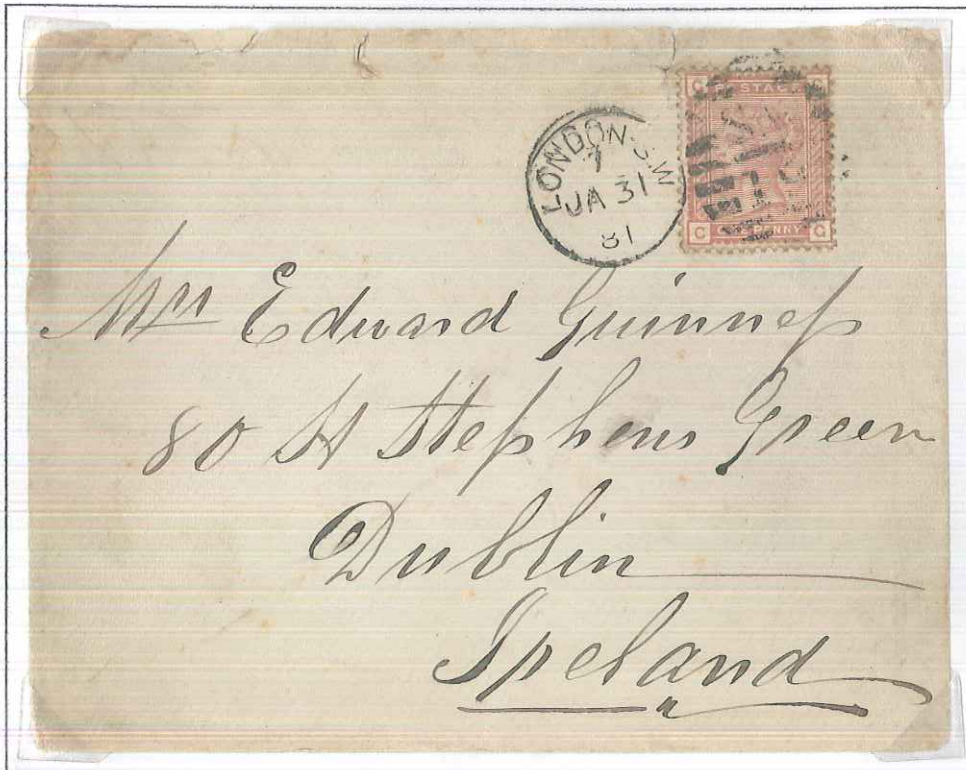 LONDON·S.W
7
JA 31
81
POSTAGE
C G
ONE PENNY
Mrs Edward Guinness
80 St Stephens Green
Dublin
Ireland